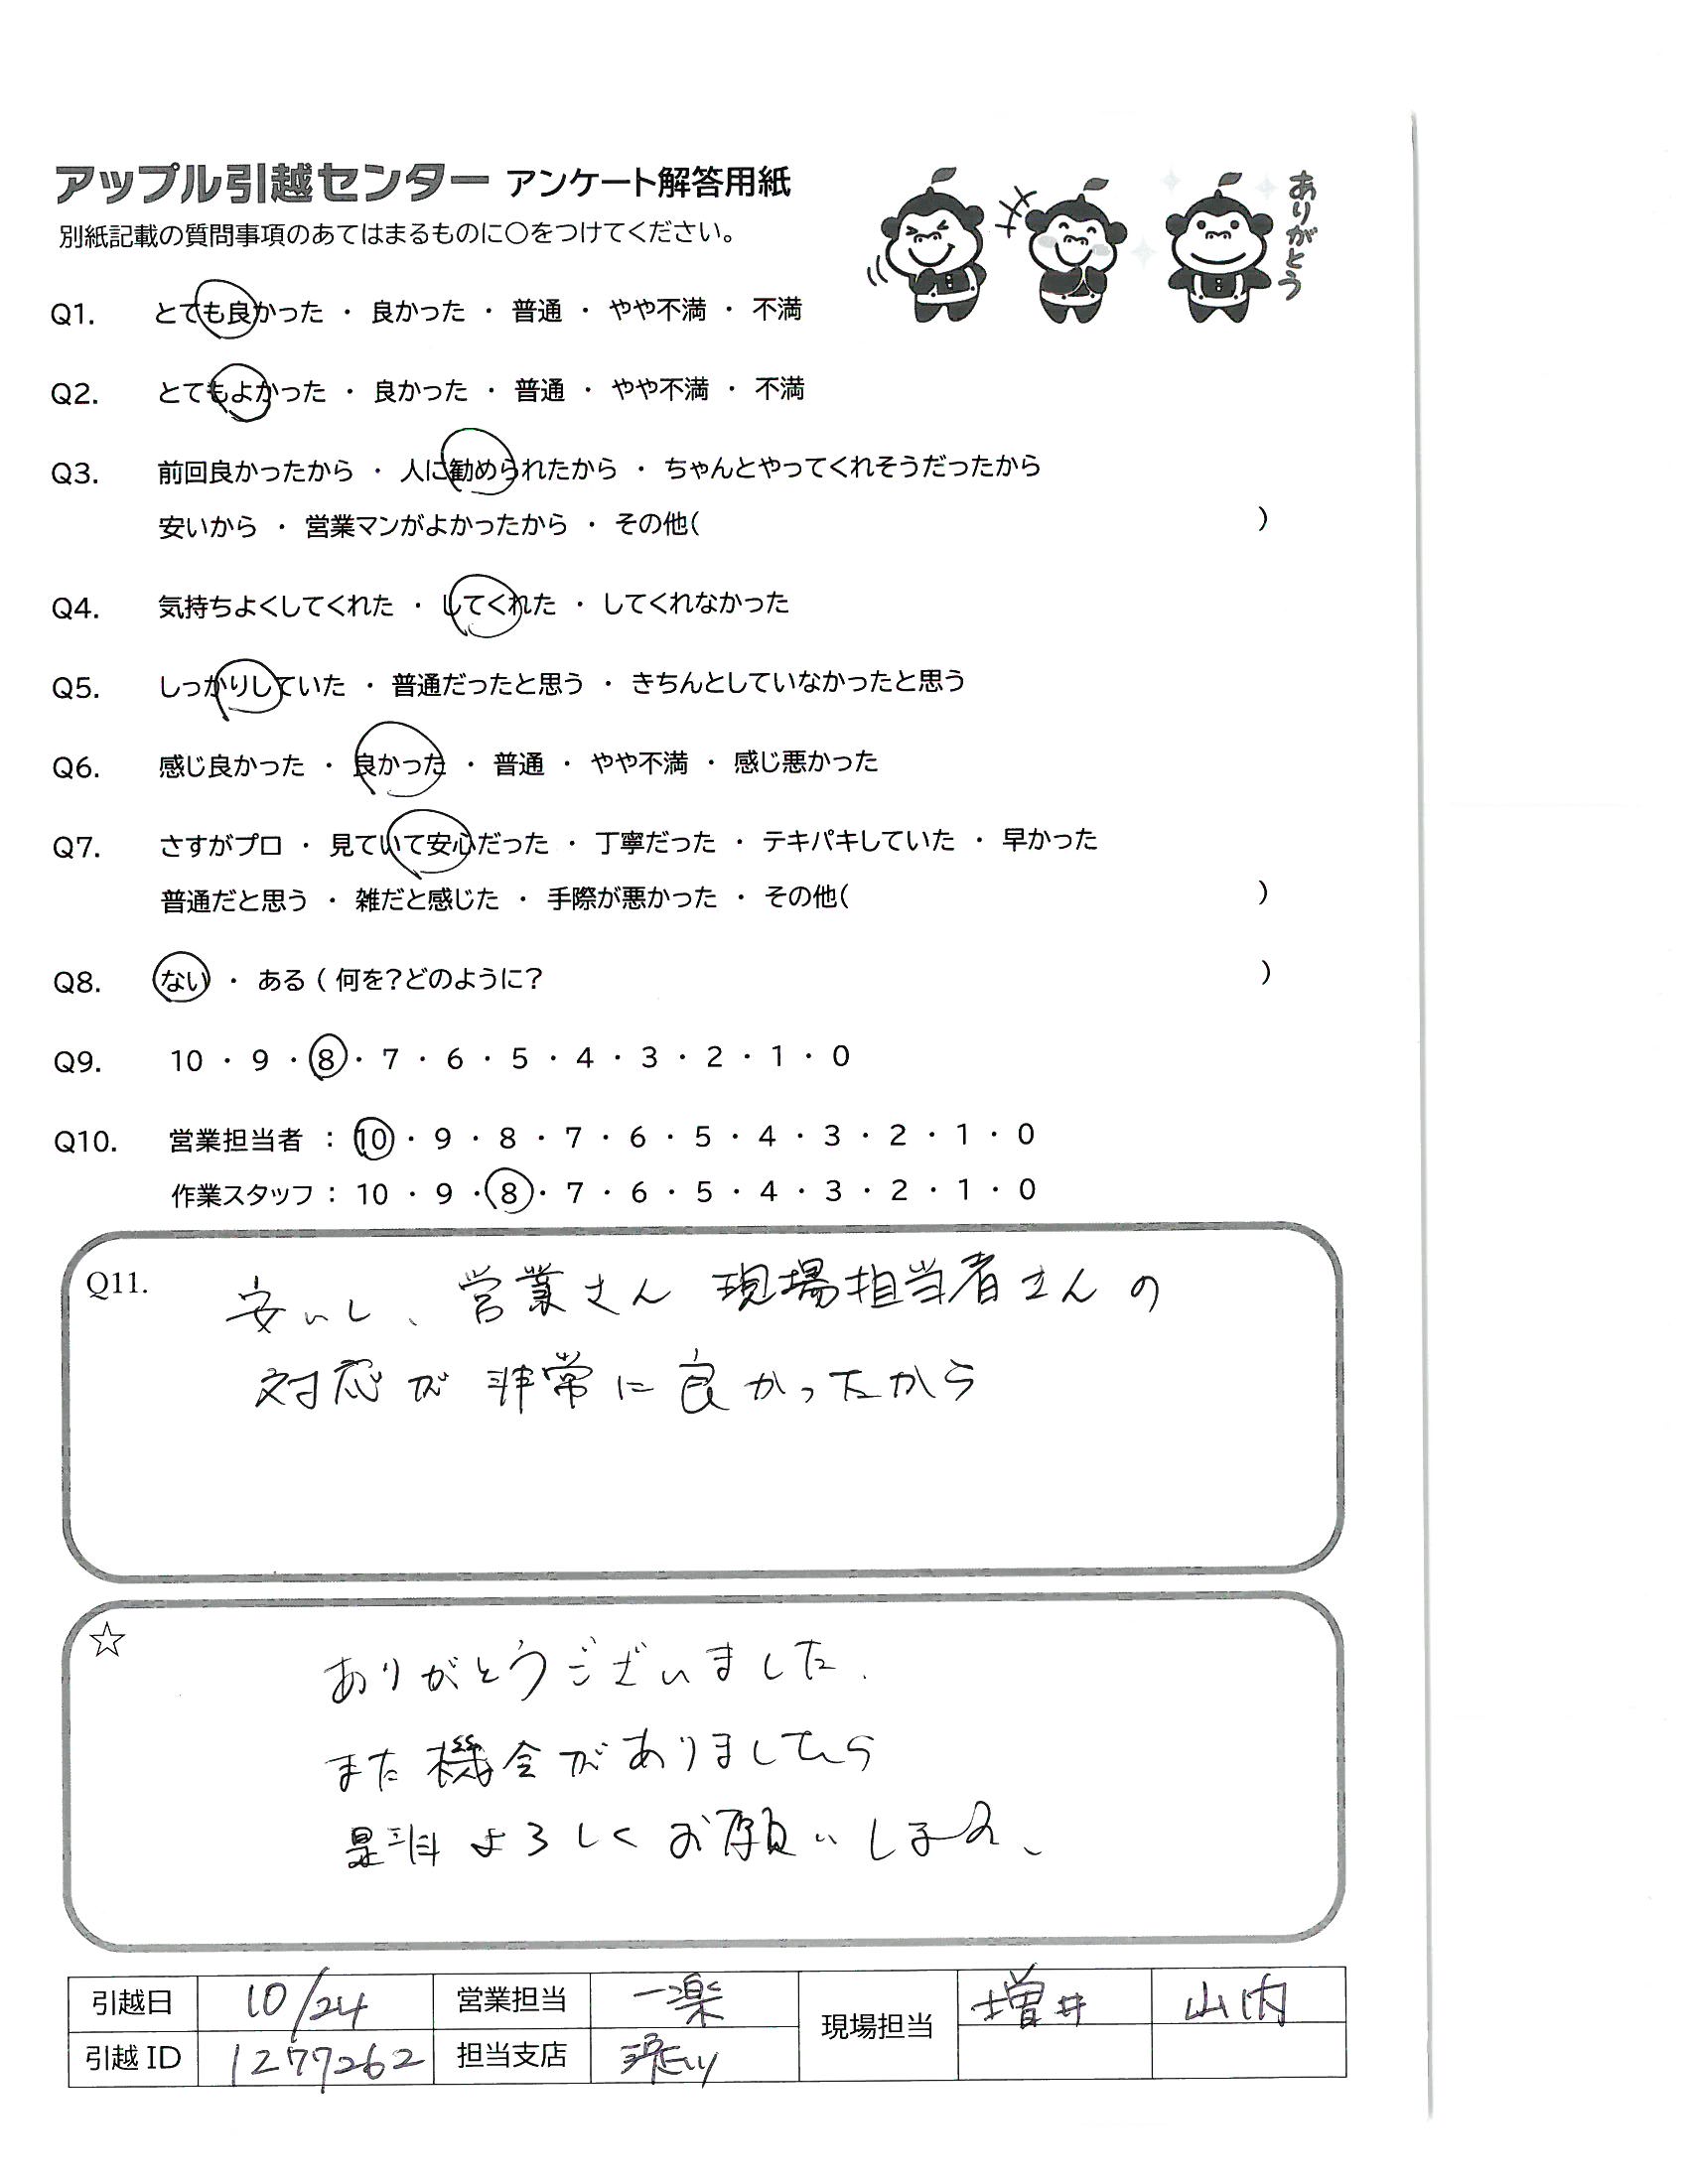 アップル引越センター アンケート解答用紙
別紙記載の質問事項のあてはまるものに〇をつけてください。
ありがとう
Q1. とても良かった ・ 良かった ・ 普通 ・ やや不満 ・ 不満
Q2. とてもよかった ・ 良かった ・ 普通 ・ やや不満 ・ 不満
Q3. 前回良かったから ・ 人に勧められたから ・ ちゃんとやってくれそうだったから
安いから ・ 営業マンがよかったから ・ その他( )
Q4. 気持ちよくしてくれた ・ してくれた ・ してくれなかった
Q5. しっかりしていた ・ 普通だったと思う ・ きちんとしていなかったと思う
Q6. 感じ良かった ・ 良かった ・ 普通 ・ やや不満 ・ 感じ悪かった
Q7. さすがプロ ・ 見ていて安心だった ・ 丁寧だった ・ テキパキしていた ・ 早かった
普通だと思う ・ 雑だと感じた ・ 手際が悪かった ・ その他( )
Q8. ない ・ ある ( 何を?どのように? )
Q9. 10 ・ 9 ・ 8 ・ 7 ・ 6 ・ 5 ・ 4 ・ 3 ・ 2 ・ 1 ・ 0
Q10. 営業担当者 : 10 ・ 9 ・ 8 ・ 7 ・ 6 ・ 5 ・ 4 ・ 3 ・ 2 ・ 1 ・ 0
作業スタッフ : 10 ・ 9 ・ 8 ・ 7 ・ 6 ・ 5 ・ 4 ・ 3 ・ 2 ・ 1 ・ 0
Q11. 安いし、営業さん 現場担当者さんの
対応が 非常に良かったから
☆ ありがとうございました.
また機会がありましたら
是非よろしくお願いします、
引越日 10/24 営業担当 一楽 現場担当 増井 山内
引越ID 1277262 担当支店